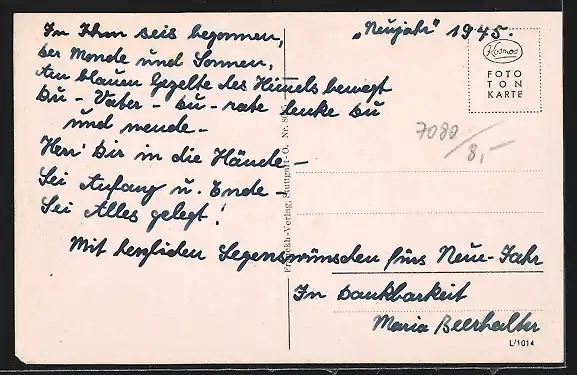 „Neujahr" 1945.
In Ihm seis begonnen,
der Monde und Sonnen,
Am blauen Gezelte des Himmels bewegt
Du - Vater - du - rate lenke Du
und wende -
Herr Dir in die Hände -
Sei Anfang u. Ende -
Sei Alles gelegt!
Mit herzlichen Segenswünschen fürs Neue-Jahr
In Dankbarkeit
Maria Beerhalter
Kosmos
FOTO
TON
KARTE
7080/8,-
Franckh-Verlag, Stuttgart-O. Nr.
L/1014